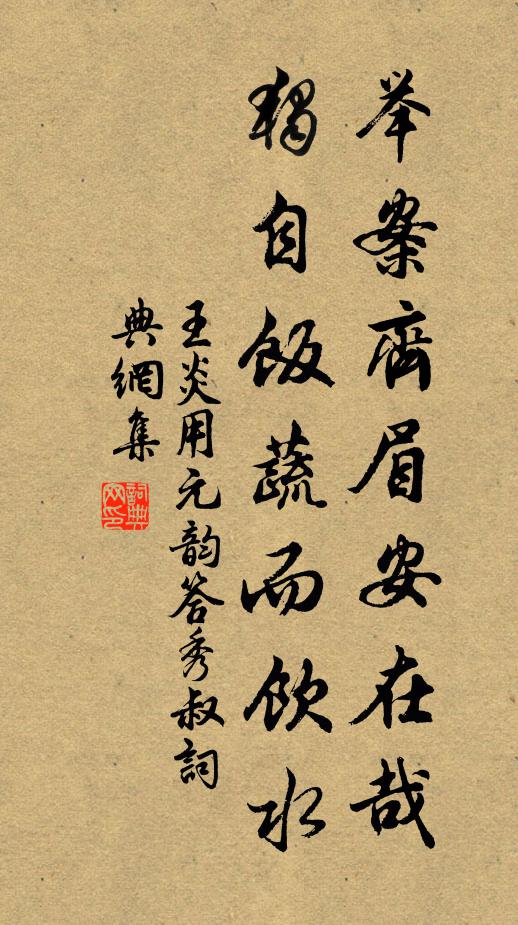 举案齊眉安在哉
獨自飯蔬而飲水
王炎用元韵答秀叔詞
典網集
詞典
网印